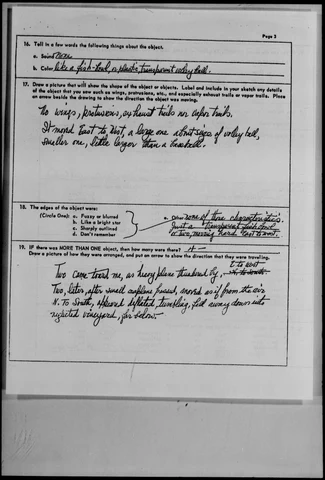 Page 3
16. Tell in a few words the following things about the object.
a. Sound none
b. Color like a fish-bowl, or plastic transparent volley ball.
17. Draw a picture that will show the shape of the object or objects. Label and include in your sketch any details
of the object that you saw such as wings, protrusions, etc., and especially exhaust trails or vapor trails. Place
an arrow beside the drawing to show the direction the object was moving.
No wings, protrusions, exhaust trails nor vapor trails.
It moved East to West, a large one about size of volley ball,
smaller one, little larger than a baseball.
18. The edges of the object were:
(Circle One): a. Fuzzy or blurred
b. Like a bright star
c. Sharply outlined
d. Don't remember
e. Other none of these characteristics.
Just a "transparent fish bowl"
or two, moving
19. IF there was MORE THAN ONE object, then how many were there? 4
Draw a picture of how they were arranged, and put an arrow to show the direction they were traveling.
E to West
Two came toward me, as heavy plane thundered by,
Two, later, after small airplane passed, moved as if from the air
N. To South, appeared deflated, tumbling, fell away down into
neglected vineyard, far below.